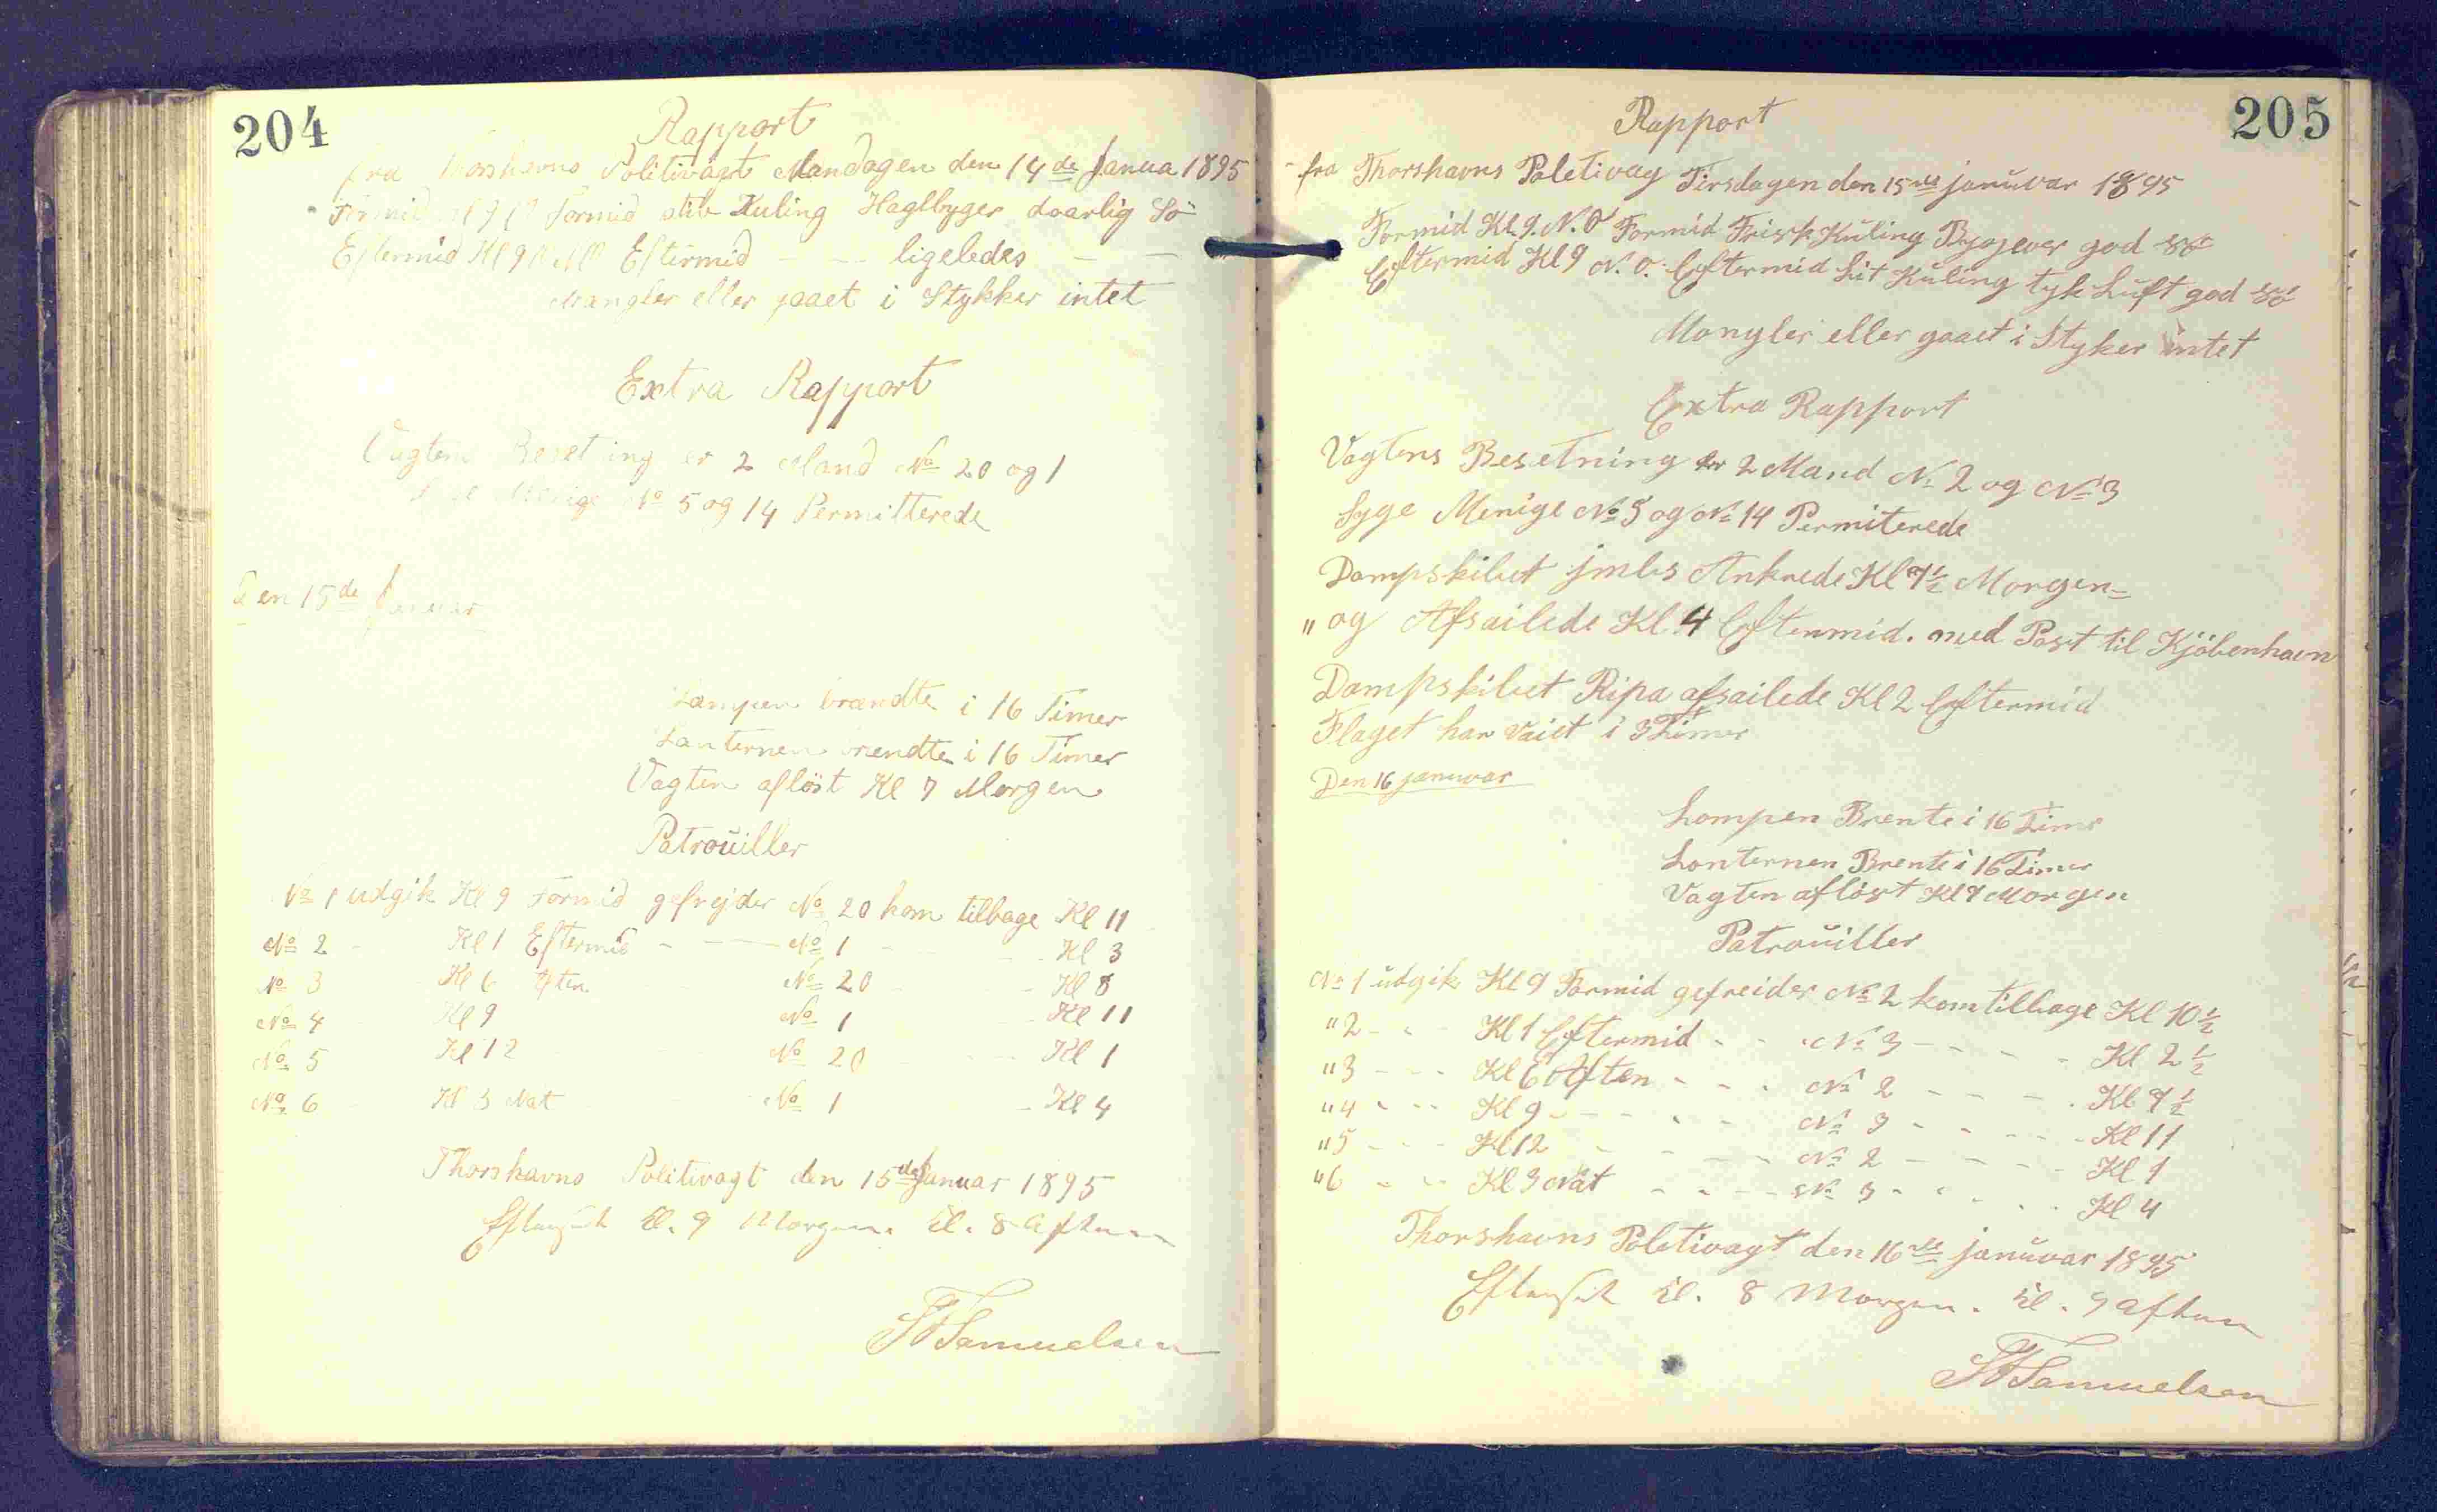 204
Rapport
fra Thorshavns Politivagt Mandagen den 14de Janua 1895
Formid Kl 9 Formid stib Kuling Haglbyger daarlig Sö
Eftermid Kl 9 Eftermid - - ligeledes - -
Mangler eller gaaet i Stykker intet
Extra Rapport
Vagten Beseting er 2 Mand No 20 og 1
Menige No 5 og 14 Permitterede
Den 15de Januar
Lampen brændte i 16 Timer
Lanternen brendte i 16 Timer
Vagten aflöst Kl 7 Morgen
Patrouiller
No 1 udgik Kl 9 Formid gefrejder No 20 kom tilbage Kl 11
No 2 - Kl 1 Eftermid - - No 1 - - Kl 3
No 3 Kl 6 Aften No 20 - Kl 8
No 4 Kl 9 No 1 - Kl 11
No 5 Kl 12 No 20 - Kl 1
No 6 Kl 3 Nat No 1 - Kl 4
Thorshavns Politivagt den 15de Januar 1895
Eftersét Kl. 9 Morgen. Kl. 8 Aften
Samuelsen
205
Rapport
fra Thorshavns Poletivag Tirsdagen den 15de januvar 1895
Formid Kl. 9. N.O Formid Frisk Kuling Bygever god Sö
Eftermid Kl 9 N.O. Eftermid Lit Kuling tyk Luft god Sö
Mangler eller gaaet i Styker intet
Extra Rapport
Vagtens Besetning er 2 Mand No 2 og No 3
Syge Menige No 5 og No 14 Permiterede
Dampskibet jmbs Ankrede Kl 7½ Morgen=
" og Afsailede Kl. 4 Eftermid. med Post til Kjöbenhavn
Dampskibet Ripa afsailede Kl 2 Eftermid
Flaget har Vaiet i 3 Timer
Den 16 januvar
Lampen Brente i 16 Timr
Lanternen Brente i 16 Timer
Vagten aflöst Kl 7 Morgen
Patrouiller
No 1 udgik Kl 9 Formid gefreider No 2 kom tilbage Kl 10½
"2 - - Kl 1 Eftermid - - No 3 - - - - Kl 2½
"3 - - - Kl 6 Aften - - - No 2 - - - - Kl 7½
"4 - - - Kl 9 - - - - No 3 - - - - Kl 11
"5 - - - Kl 12 - - - - No 2 - - - - Kl 1
"6 - - Kl 3 Nat - - - - No 3 - - - - Kl 4
Thorshavns Poletivagt den 16de januvar 1895
Eftersét Kl. 8 Morgen. Kl. 9 Aften
Samuelsen